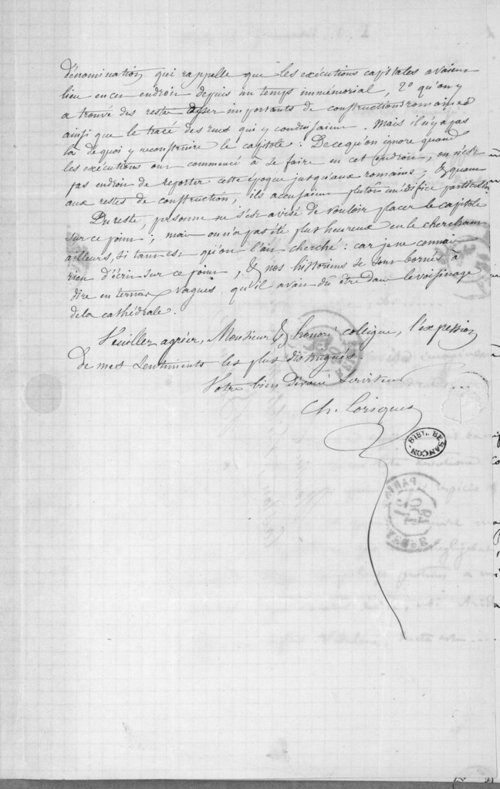 dénomination, qui rappelle que les exécutions capitales avaient
lieu en cet endroit depuis un temps immémorial, 2° qu'on y
a trouvé des restes assez importants de constructions romaines
ainsi que le tracé des rues qui y conduisaient. Mais il n'y a pas
là de quoi y reconstruire le capitole. De ce qu'on ignore quand
les exécutions ont commencé à se faire en cet endroit, on n'est
pas en droit de reporter cette époque jusqu'aux romains; & quant
aux restes de construction, ils accusaient plutôt un édifice particulier.
Du reste, personne ne s'est avisé de vouloir placer le capitole
sur ce point; mais on n'a pas été plus heureux en le cherchant
ailleurs, si tant est qu'on l'ait cherché: car je ne connais
rien d'écrit sur ce point, & nos historiens se sont bornés à
dire en termes vagues, qu'il avait dû être dans le voisinage
de la cathédrale.
Veuillez agréer, Monsieur & honoré collègue, l'expression
de mes sentiments les plus distingués.
Votre bien dévoué serviteur
Ch. Loriquet
BIBL. DE BESANÇON